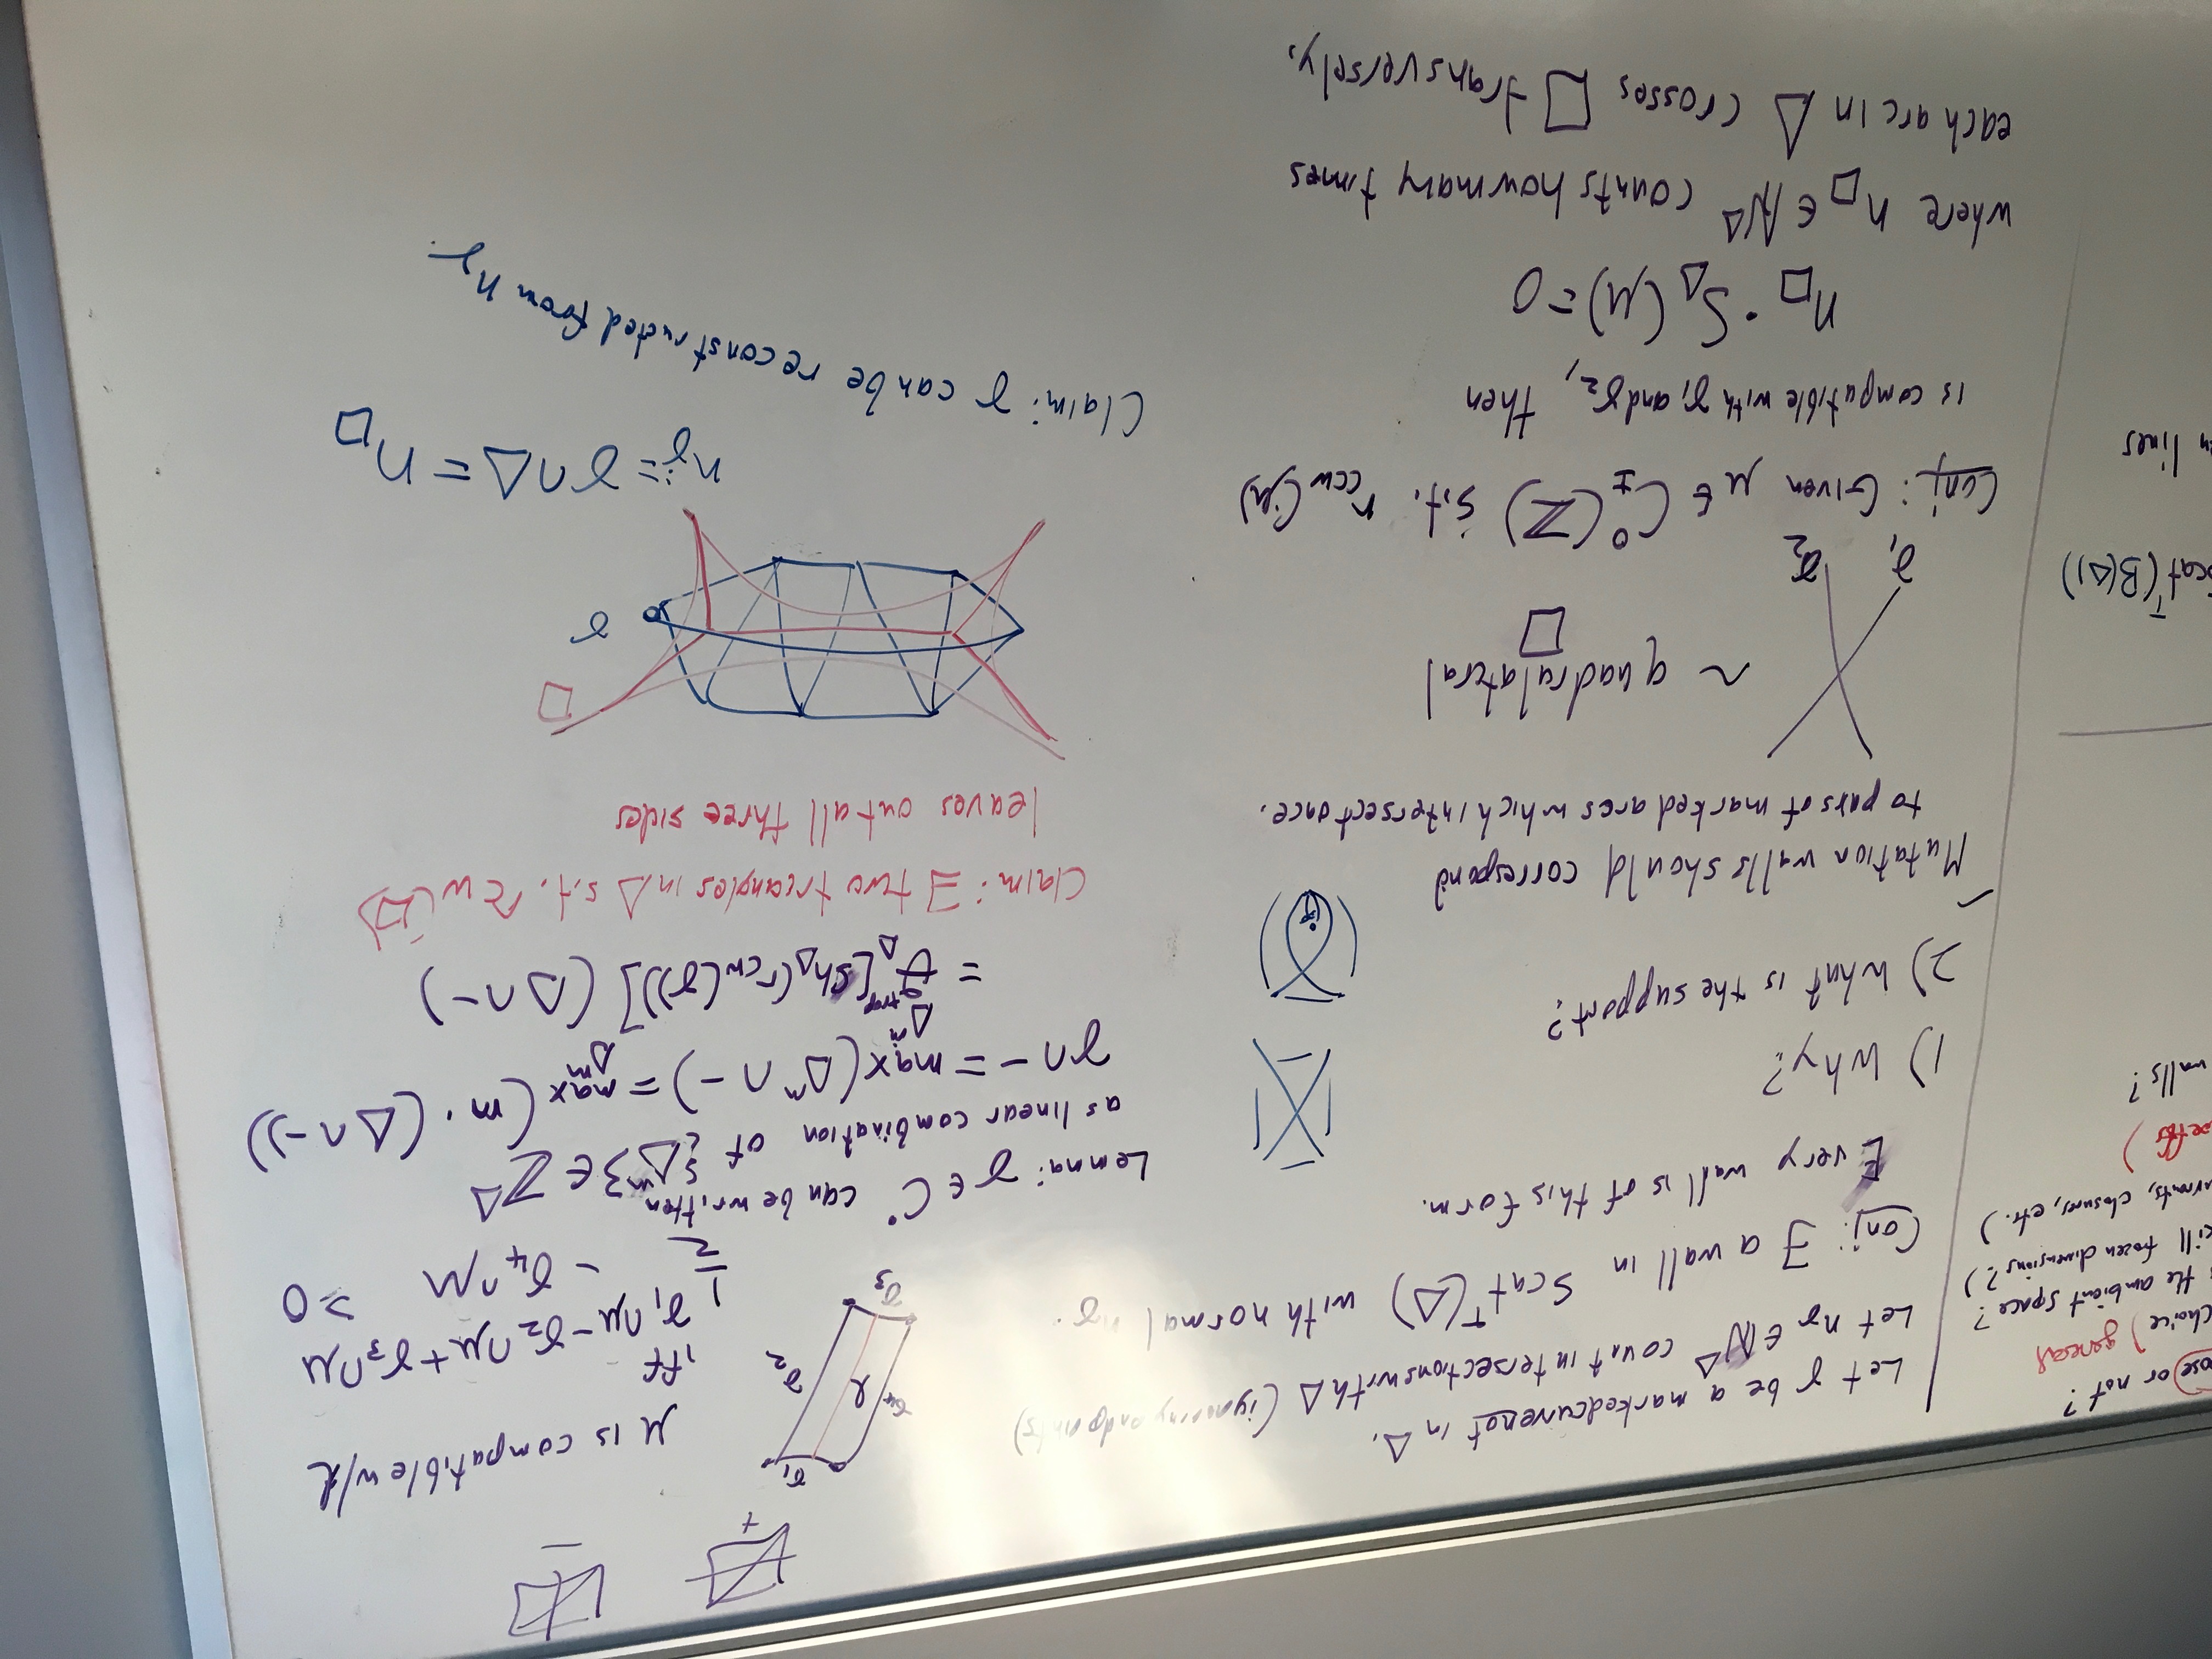 or not?
choice) general
the ambient space?
kill frozen dimensions?)
closures, etc.)
walls?
Scat^T(B(Δ))
lines
Let γ be a marked curve not in Δ.
Let n_γ ∈ ℕ^Δ count intersections with Δ (ignoring endpoints)
Conj: ∃ a wall in Scat^T(Δ) with normal n_γ.
Every wall is of this form.
1) Why?
2) What is the support?
Mutation walls should correspond
to pairs of marked arcs which intersect once.
~ quadrulateral
□
γ_1 γ_2
Conj: Given μ ∈ C^o_±(ℤ) s.t. r_ccw(μ)
is compatible with γ_1 and γ_2, then
n_□ · S_Δ(μ) = 0
where n_□ ∈ ℕ^Δ counts how many times
each arc in Δ crosses □ transversely.
+ −
γ_1
γ_4 l γ_2
γ_3
μ is compatible w/ l
iff
1/2 γ_1∩μ − γ_2∩μ + γ_3∩μ
− γ_4∩μ ≥ 0
Lemma: γ ∈ C^• can be written
as linear combination of {Δ^m} ∈ ℤ^Δ
γ∩− = max_{Δ^m}(Δ^m ∩ −) = max_{Δ^m}(m · (Δ∩−))
= ϑ^trop_Δ[Sh_Δ(r_cw(γ))](Δ∩−)
Claim: ∃ two triangles in Δ s.t. r_cw(□)
leaves out all three sides
□
γ
n_γ := γ∩Δ = n_□
Claim: γ can be reconstructed from n_γ.